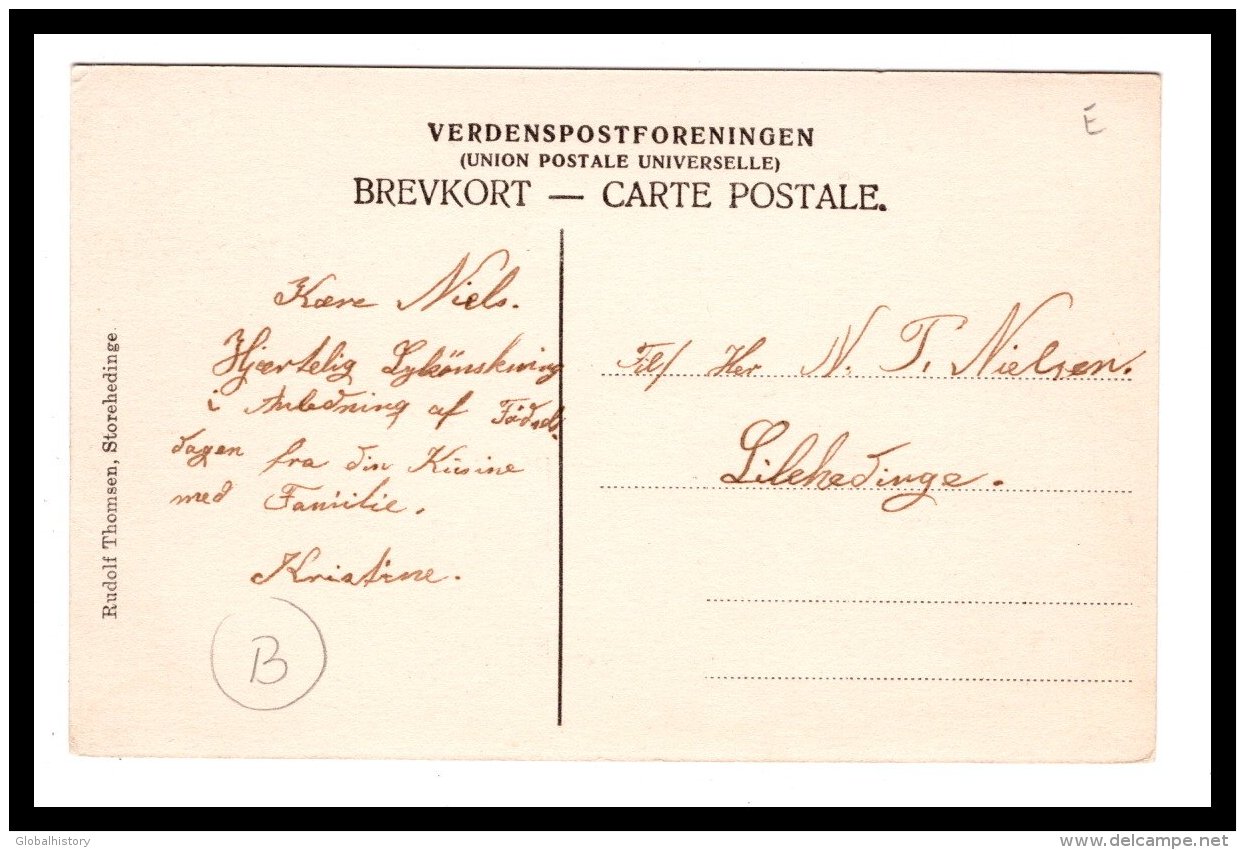 E
VERDENSPOSTFORENINGEN
(UNION POSTALE UNIVERSELLE)
BREVKORT — CARTE POSTALE.
Rudolf Thomsen, Storehedinge.
Kære Niels.
Hjærtelig Lykönskning
i Anledning af Födsels
dagen fra din Kusine
med Familie.
Kristine.
B
Til/ Her N. T. Nielsen.
Lilehedinge.
Globalhistory
delcampe.net